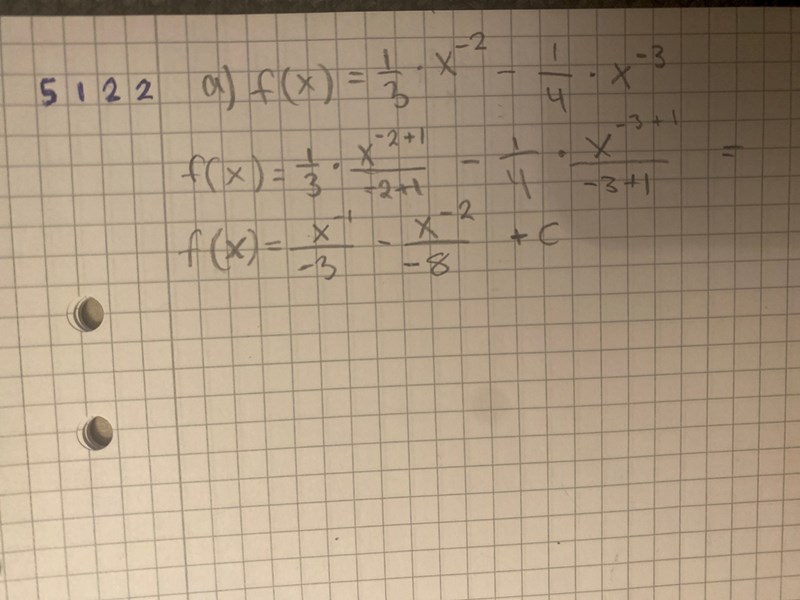 5122 a) f(x) = 1/3 · x^-2 - 1/4 · x^-3
f(x) = 1/3 · x^-2+1/-2+1 - 1/4 · x^-3+1/-3+1 =
f(x) = x^-1/-3 - x^-2/-8 + C